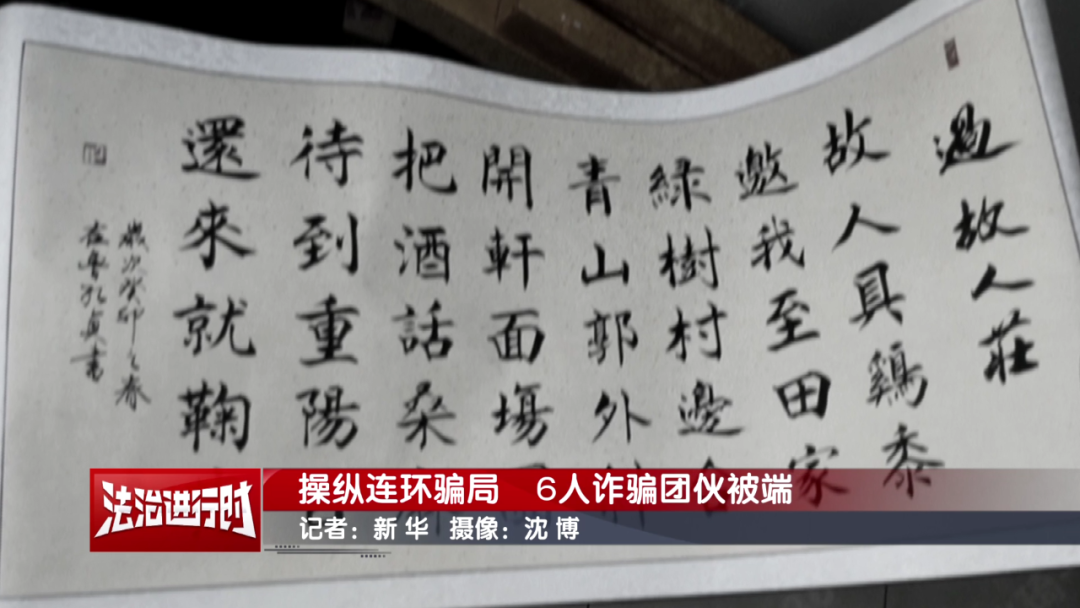 過故人莊
故人具鷄黍
邀我至田家
綠樹村邊合
青山郭外
開軒面場
把酒話桑
待到重陽
還來就鞠
歲次癸卯之春
法治进行时
操纵连环骗局 6人诈骗团伙被端
记者：新华 摄像：沈博